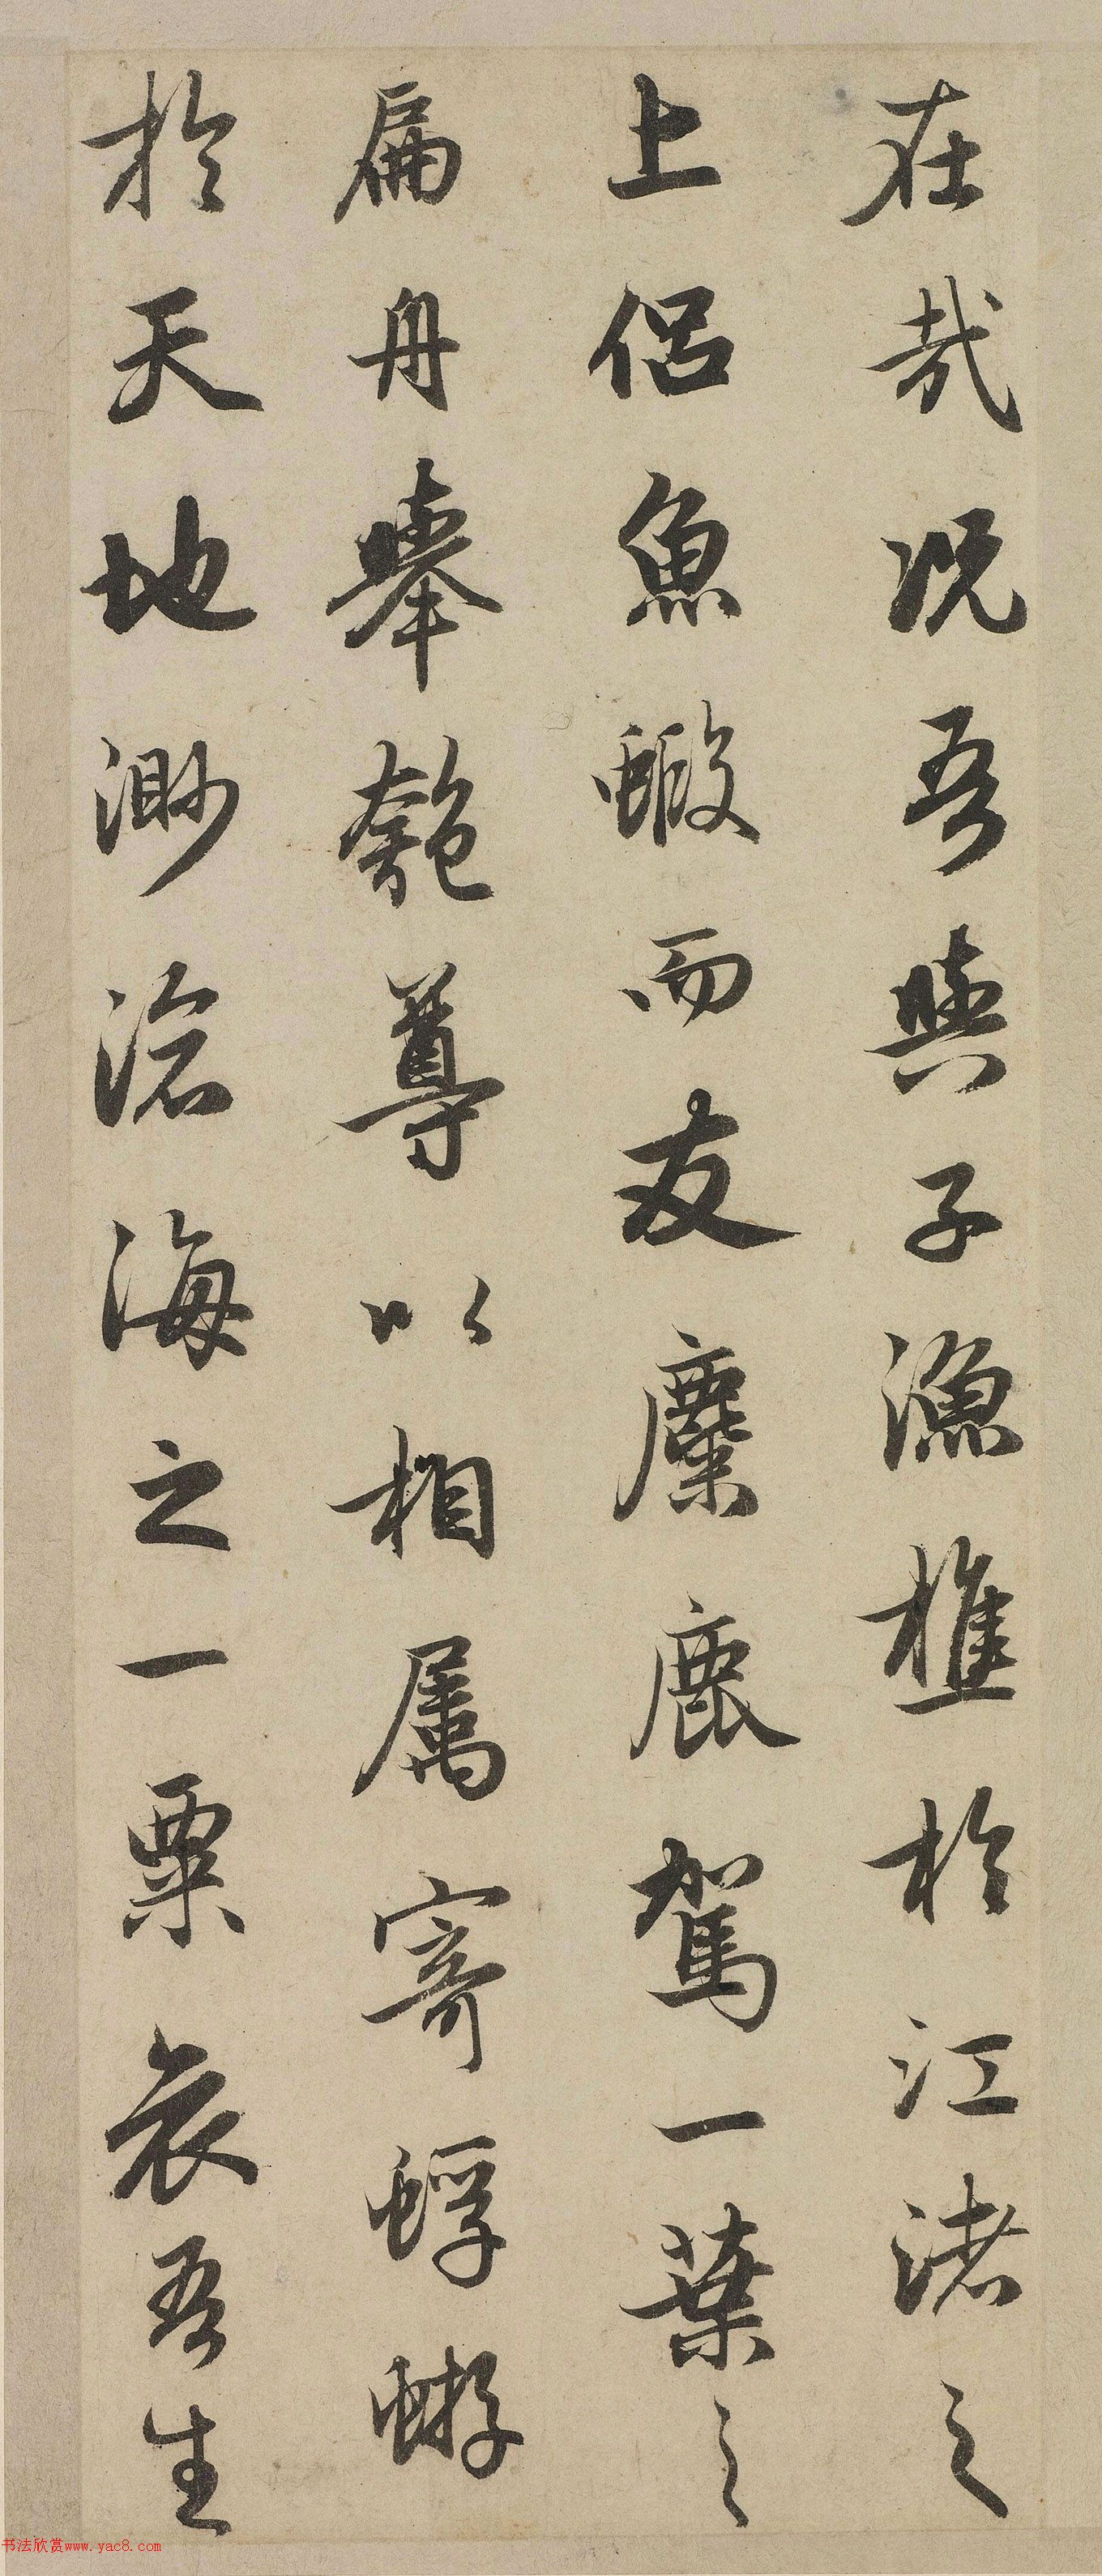 在哉况吾與子漁樵於江渚之
上侣魚蝦而友麋鹿駕一葉之
扁舟舉匏尊以相属寄蜉蝣
於天地渺滄海之一粟哀吾生
书法欣赏www.yac8.com